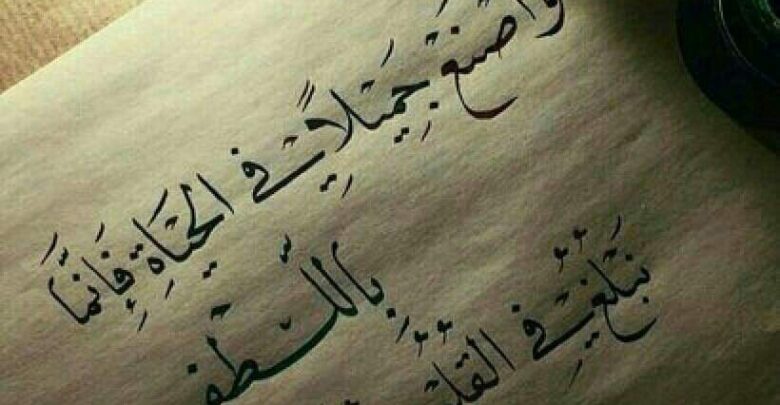 وَاصْنَعْ جَمِيلًا في الحَيَاةِ فَإِنَّمَا
بِاللُّطْفِ
نَبْلُغُ في